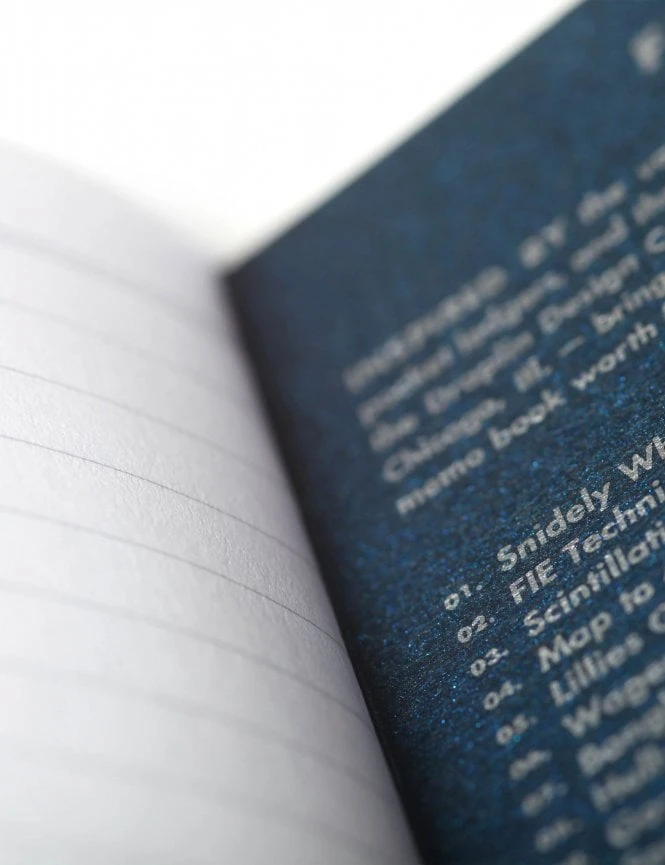 INSPIRED BY the
pocket ledgers, and the
the Draplin Design C
Chicago, Ill. — bring
memo book worth
01. Snidely Wh
02. FIE Techni
03. Scintillati
04. Map to
05. Lillies
06. Wage
07.